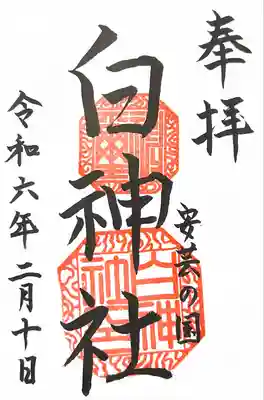 奉拝
安芸の国
白神社
令和六年二月十日